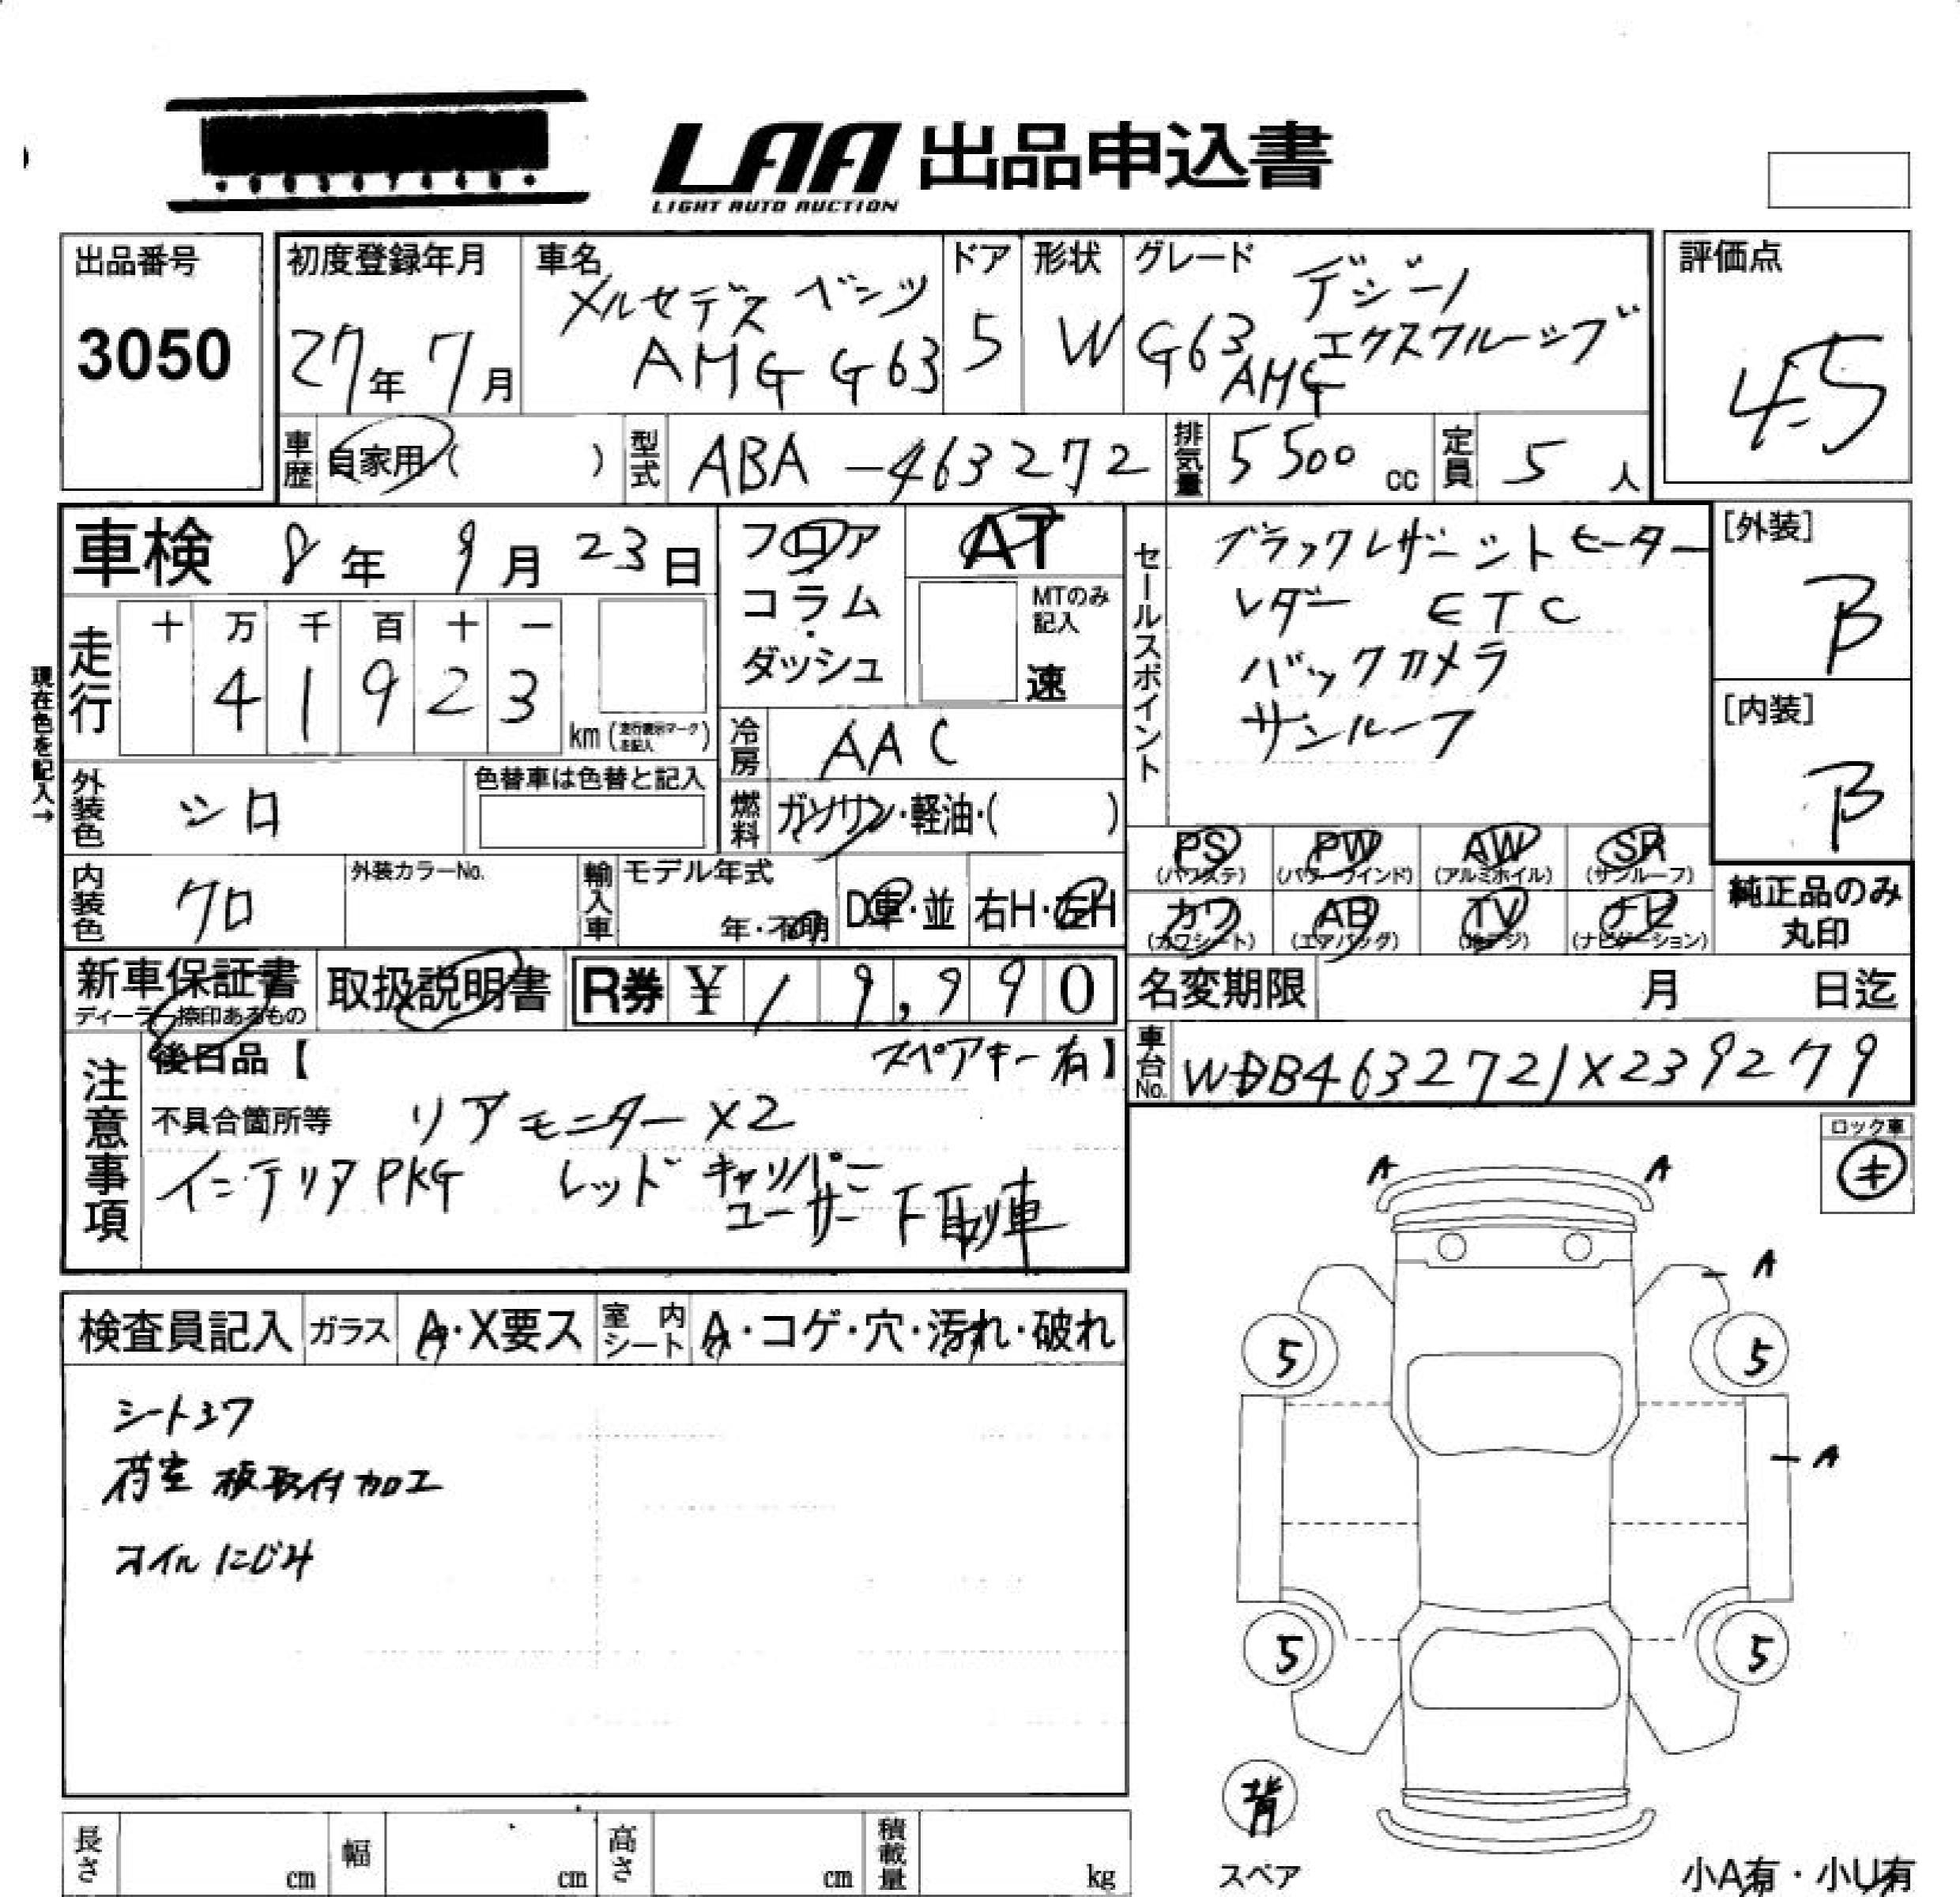 LAA 出品申込書
LIGHT AUTO AUCTION
出品番号
3050
初度登録年月
27年 7月
車名
メルセデス ベンツ
AMG G63
ドア
5
形状
W
グレード
デジーノ
G63 エクスクルーシブ
AMG
評価点
4.5
車歴
自家用 ( )
型式
ABA-463272
排気量
5500 cc
定員
5 人
車検 8年 9月 23日
現在色を記入→
走行
十 万 千 百 十 一
4 1 9 2 3
km (走行表示マークを記入)
フロア
コラム
・
ダッシュ
AT
MTのみ
記入
速
冷房
AAC
燃料
ガソリン・軽油・( )
外装色
シロ
色替車は色替と記入
内装色
クロ
外装カラーNo.
輸入車
モデル年式
年・不明
D車・並
右H・左H
セールスポイント
ブラックレザーシートヒーター
レダー ETC
バックカメラ
サンルーフ
[外装]
B
[内装]
B
PS PW AW SR
(パワステ) (パワーウインド) (アルミホイル) (サンルーフ)
カワ AB TV ナビ
(カワシート) (エアバッグ) (地デジ) (ナビゲーション)
純正品のみ
丸印
新車保証書
ディーラー捺印あるもの
取扱説明書
R券 ¥ 19,990
名変期限 月 日迄
車台No.
WDB4632721X239279
注意事項
後日品【 スペアキー有】
不具合箇所等 リアモニターX2
インテリアPKG レッドキャリパー
ユーザー下取り車
ロック車
キ
検査員記入
ガラス
A・X要ス
室内シート
A・コゲ・穴・汚れ・破れ
シートスワ
荷室 板取付加工
オイルにじみ
A A
A
5 5
A
5 5
背
スペア
小A有・小U有
長さ
cm
幅
cm
高さ
cm
積載量
kg